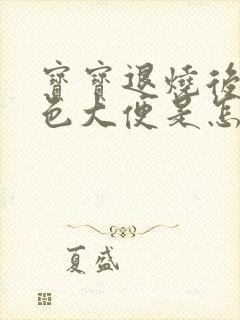 寶寶退燒後
色大便是怎
夏盛